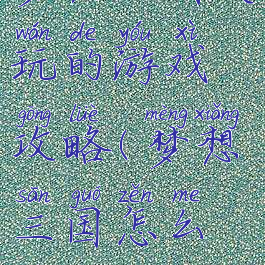 wán de yóu xì
玩的游戏
gōng lüè mèng xiǎng
攻略(梦想
sān guó zěn me
三国怎么